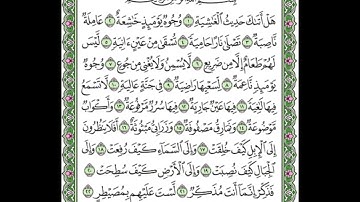 بِسْمِ ٱللَّهِ ٱلرَّحْمَٰنِ ٱلرَّحِيمِ
هَلْ أَتَىٰكَ حَدِيثُ ٱلْغَٰشِيَةِ ١ وُجُوهٌ يَوْمَئِذٍ خَٰشِعَةٌ ٢ عَامِلَةٌ
نَّاصِبَةٌ ٣ تَصْلَىٰ نَارًا حَامِيَةً ٤ تُسْقَىٰ مِنْ عَيْنٍ ءَانِيَةٍ ٥ لَّيْسَ
لَهُمْ طَعَامٌ إِلَّا مِن ضَرِيعٍ ٦ لَّا يُسْمِنُ وَلَا يُغْنِى مِن جُوعٍ ٧ وُجُوهٌ
يَوْمَئِذٍ نَّاعِمَةٌ ٨ لِّسَعْيِهَا رَاضِيَةٌ ٩ فِى جَنَّةٍ عَالِيَةٍ ١٠ لَّا تَسْمَعُ
فِيهَا لَٰغِيَةً ١١ فِيهَا عَيْنٌ جَارِيَةٌ ١٢ فِيهَا سُرُرٌ مَّرْفُوعَةٌ ١٣ وَأَكْوَابٌ
مَّوْضُوعَةٌ ١٤ وَنَمَارِقُ مَصْفُوفَةٌ ١٥ وَزَرَابِىُّ مَبْثُوثَةٌ ١٦ أَفَلَا يَنظُرُونَ
إِلَى ٱلْإِبِلِ كَيْفَ خُلِقَتْ ١٧ وَإِلَى ٱلسَّمَآءِ كَيْفَ رُفِعَتْ ١٨ وَإِلَى
ٱلْجِبَالِ كَيْفَ نُصِبَتْ ١٩ وَإِلَى ٱلْأَرْضِ كَيْفَ سُطِحَتْ ٢٠
فَذَكِّرْ إِنَّمَآ أَنتَ مُذَكِّرٌ ٢١ لَّسْتَ عَلَيْهِم بِمُصَيْطِرٍ ٢٢